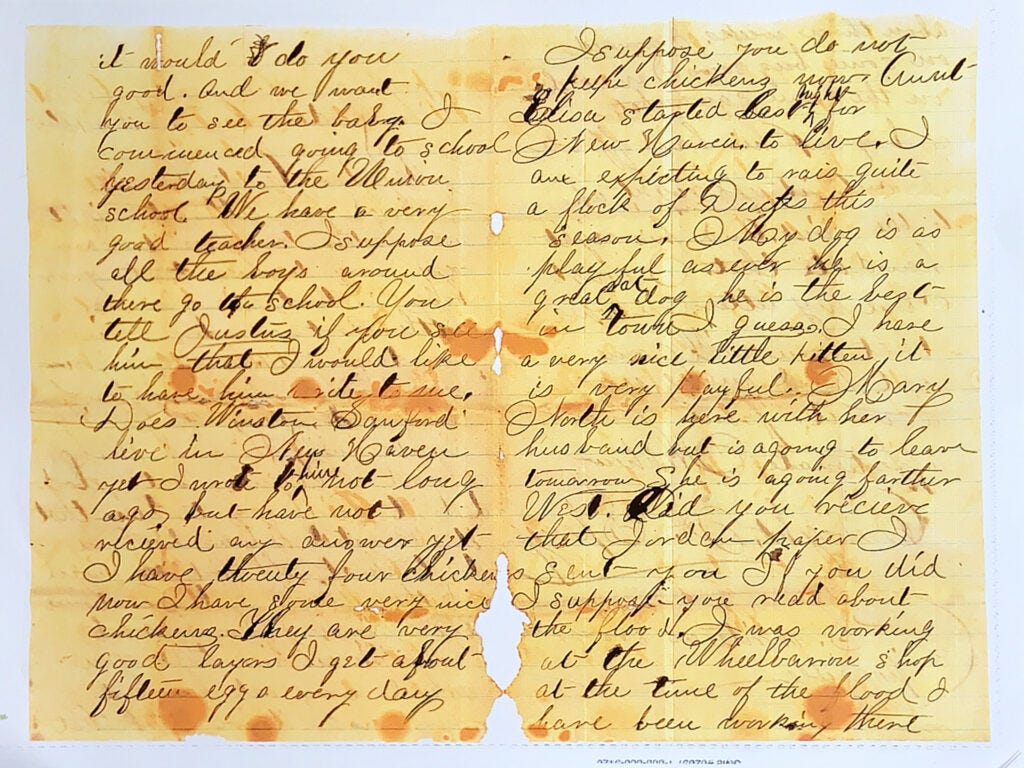 it would do you
good. And we want
you to see the baby. I
commenced going to school
yesterday to the Union
school. We have a very
good teacher. I suppose
all the boys around
there go to school. You
tell Justus if you se
him that I would like
to have him write to me.
Does Winston Sanford
live in New Haven
yet I wrot to him not long
ago but have not
recieved any answer yet
I have twenty four chickens
now I have some very nice
chickens. They are very
good layers I get about
fifteen eggs every day
I suppose you do not
keep chickens now. Aunt
Elisa started last night for
New Haven. to live. I
am expicting to rais quite
a flock of Ducks this
season. My dog is as
playful as ever he is a
great rat dog he is the best
in town I guess. I have
a very nice little kitten it
is very playful. Mary
North is here with her
husband but is agoing to leave
tomorrow She is agoing farther
West. Did you recieve
that Jordan paper I
sent you If you did
I suppose you read about
the flood. I was working
at the Wheelbarrow shop
at the time of the flood I
have been working there